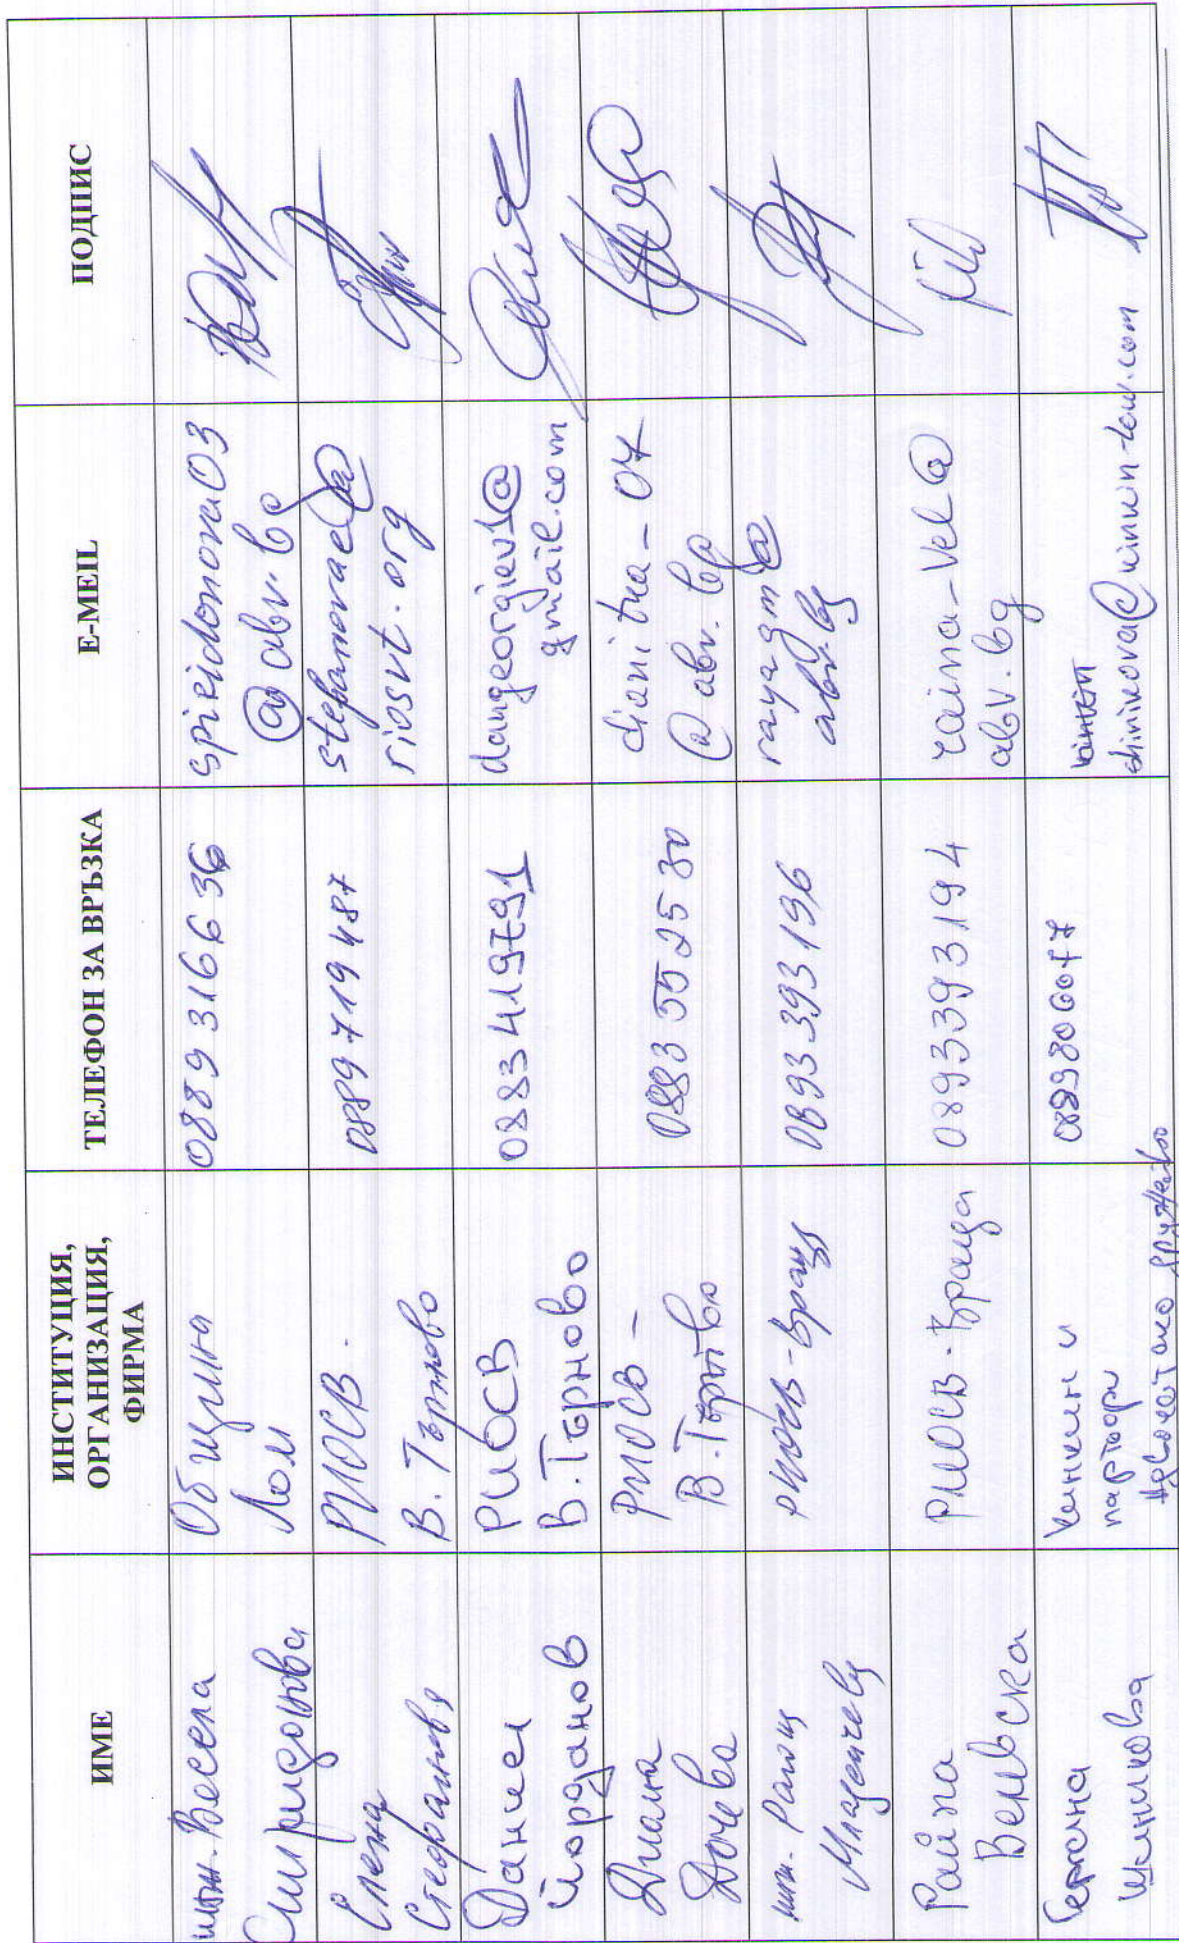 ИМЕ
ИНСТИТУЦИЯ,
ОРГАНИЗАЦИЯ,
ФИРМА
ТЕЛЕФОН ЗА ВРЪЗКА
E-MEIL
ПОДПИС
инж. Весела
Спиридонова
Община
Лом
0889316636
spiridonova03
@abv.bg
Елена
Стефанова
РИОСВ -
В. Търново
0889719487
stefanovae@
riosvt.org
Даниел
Йорданов
РИОСВ
В. Търново
0883419791
dangeorgiev1@
gmail.com
Диана
Дочева
РИОСВ -
В. Търново
0883552530
dianitna_07
@abv.bg
инж. Рая
Младенчева
РИОСВ - Враца
0893393196
rayagm@
abv.bg
Райна
Велевска
РИОСВ - Враца
0893393194
raina_vel@
abv.bg
Гергана
и
партньори
Адвокатско дружество